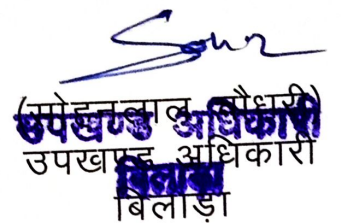 (मोहनलाल चौधरी)
उपखण्ड अधिकारी
उपखण्ड अधिकारी
बिलाड़ा
बिलाड़ा